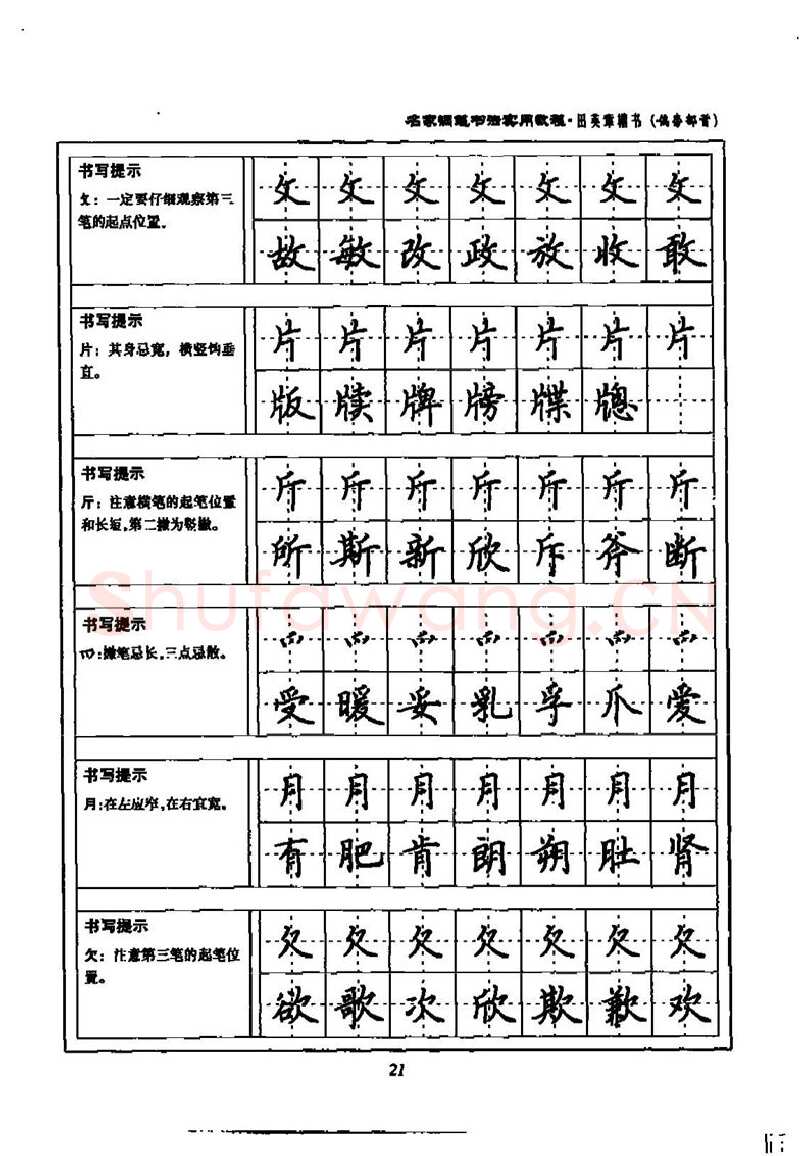 名家钢笔书法实用教程·田英章楷书（偏旁部首）
书写提示
攵：一定要仔细观察第三
笔的起点位置。
攵 攵 攵 攵 攵 攵 攵
故 敏 改 政 放 收 敢
书写提示
片：其身忌宽，横竖钩垂
直。
片 片 片 片 片 片 片
版 牍 牌 牓 牒 牕
书写提示
斤：注意横笔的起笔位置
和长短，第二撇为竖撇。
斤 斤 斤 斤 斤 斤 斤
所 斯 新 欣 斥 斧 断
书写提示
爫：撇笔忌长，三点忌散。
爫 爫 爫 爫 爫 爫 爫
受 暖 妥 乳 孚 爪 爱
书写提示
月：在左应窄，在右宜宽。
月 月 月 月 月 月 月
有 肥 肯 朗 朔 肚 肾
书写提示
欠：注意第三笔的起笔位
置。
欠 欠 欠 欠 欠 欠 欠
欲 歌 次 欣 欺 歉 欢
21
Shufawang.CN